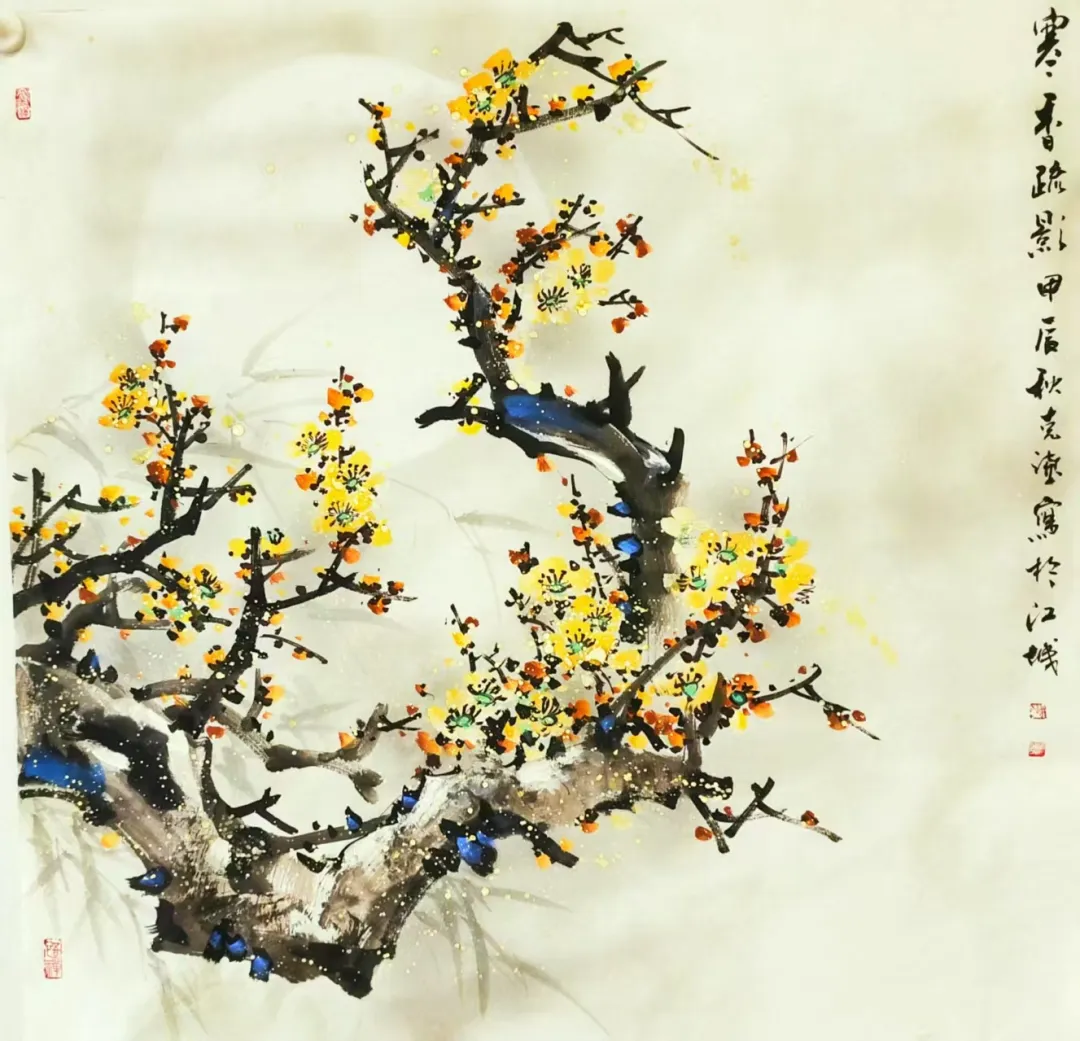 寒香疏影甲辰秋克德寫於江城